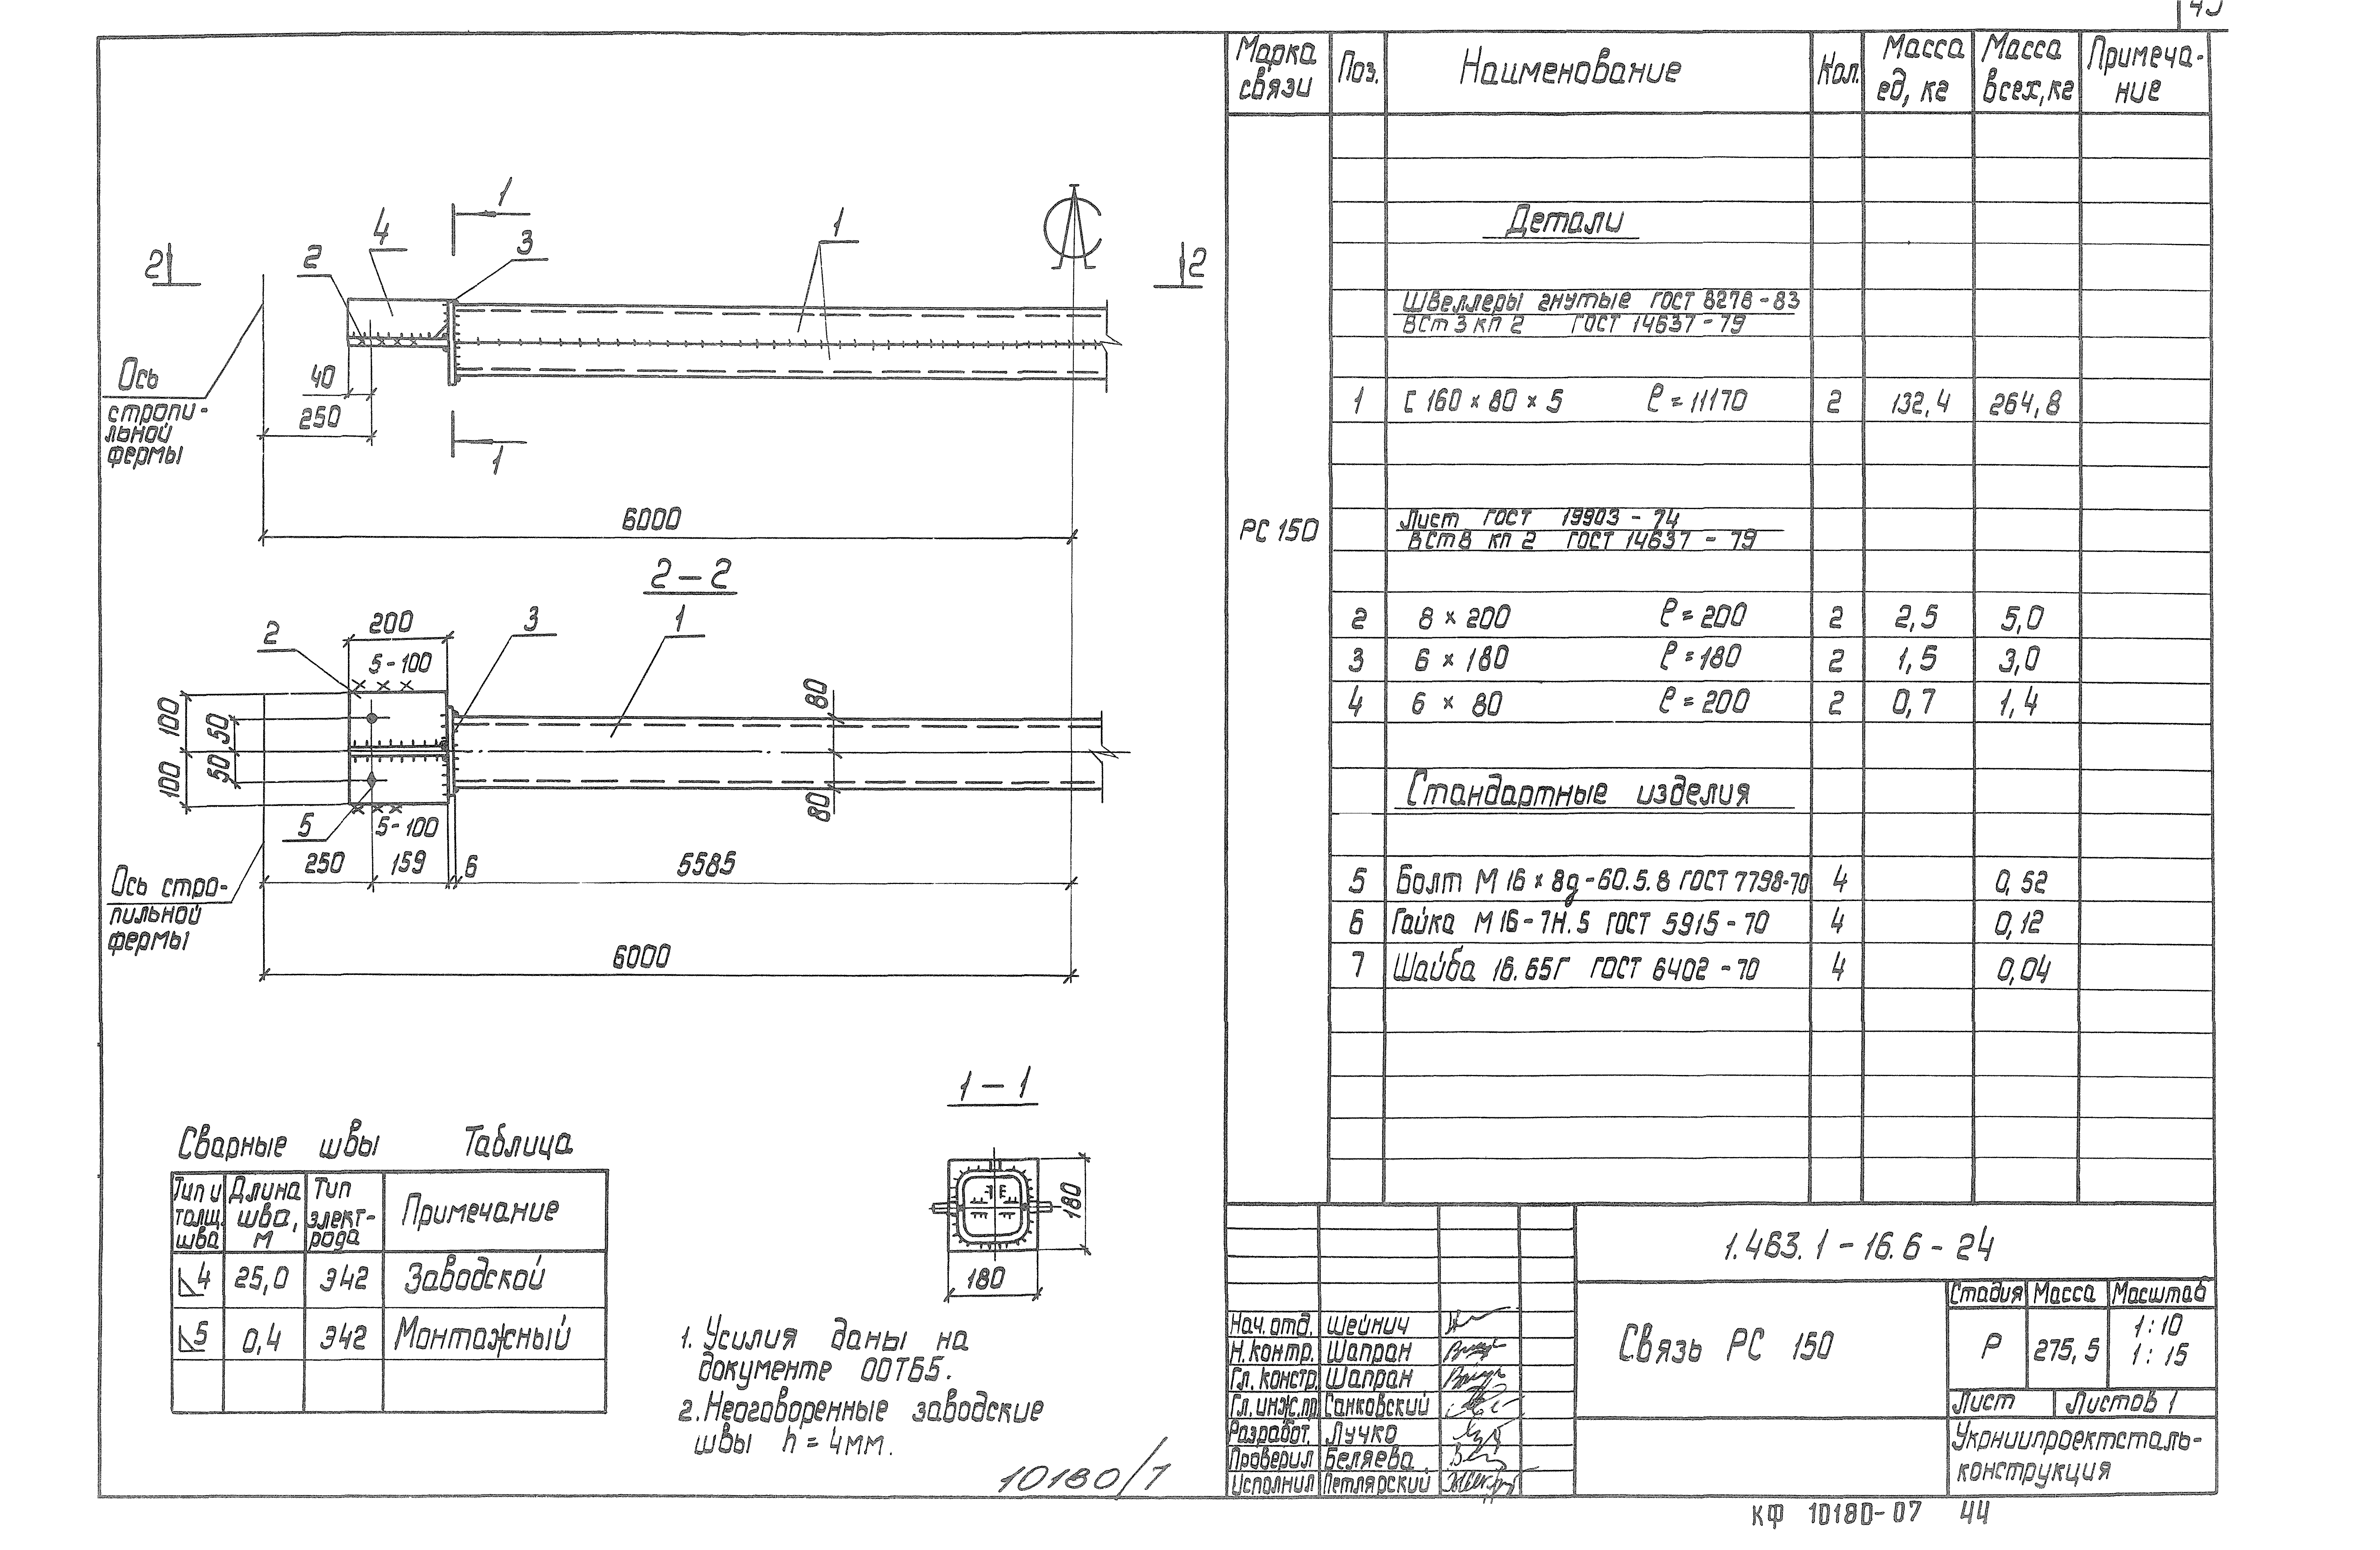 Марка связи | Поз. | Наименование | Кол. | Масса ед, кг | Масса всех, кг | Примеча-ние
Детали
Швеллеры гнутые ГОСТ 8278-83
ВСт 3 кп 2 ГОСТ 14637-79
1 | С 160 × 80 × 5 ℓ = 11170 | 2 | 132,4 | 264,8
РС 150
Лист ГОСТ 19903-74
ВСт 8 кп 2 ГОСТ 14637-79
2 | 8 × 200 ℓ = 200 | 2 | 2,5 | 5,0
3 | 6 × 180 ℓ = 180 | 2 | 1,5 | 3,0
4 | 6 × 80 ℓ = 200 | 2 | 0,7 | 1,4
Стандартные изделия
5 | Болт М 16 × 8g-60.5.8 ГОСТ 7798-70 | 4 | 0,52
6 | Гайка М 16-7Н.5 ГОСТ 5915-70 | 4 | 0,12
7 | Шайба 16.65Г ГОСТ 6402-70 | 4 | 0,04
1
4
3
2
1
2
2
Ось
стропи-
льной
фермы
40
250
1
6000
2-2
200
2
3
1
5-100
100
50
50
100
80
80
5
5-100
250
159
6
5585
Ось стро-
пильной
фермы
6000
1-1
180
180
Сварные швы Таблица
Тип и толщ. шва | Длина шва, м | Тип элект-рода | Примечание
4 | 25,0 | Э42 | Заводской
5 | 0,4 | Э42 | Монтажный
1. Усилия даны на
документе 00ТБ5.
2. Неоговоренные заводские
швы h = 4мм.
10180/7
1.463.1-16.6-24
Связь РС 150
Стадия | Масса | Масштаб
Р | 275,5 | 1:10
1:15
Лист | Листов 1
Укрниипроектсталь-
конструкция
Нач. отд. Шейнич
Н. контр. Шапран
Гл. констр. Шапран
Гл. инж. пр. Санковский
Разработ. Лучко
Проверил Беляева
Исполнил Петлярский
КФ 10180-07 44